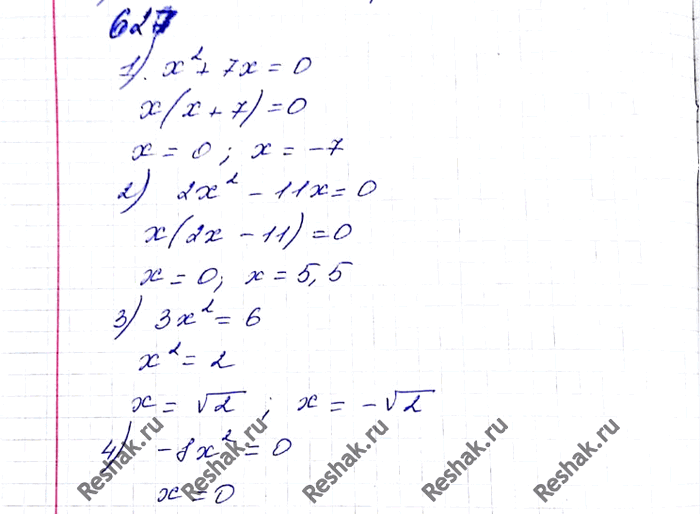 627
1). x² + 7x = 0
x(x + 7) = 0
x = 0; x = -7
2) 2x² - 11x = 0
x(2x - 11) = 0
x = 0; x = 5,5
3) 3x² = 6
x² = 2
x = √2; x = -√2
4) -8x² = 0
x = 0
Reshak.ru
Reshak.ru
Reshak.ru
Reshak.ru
Reshak.ru